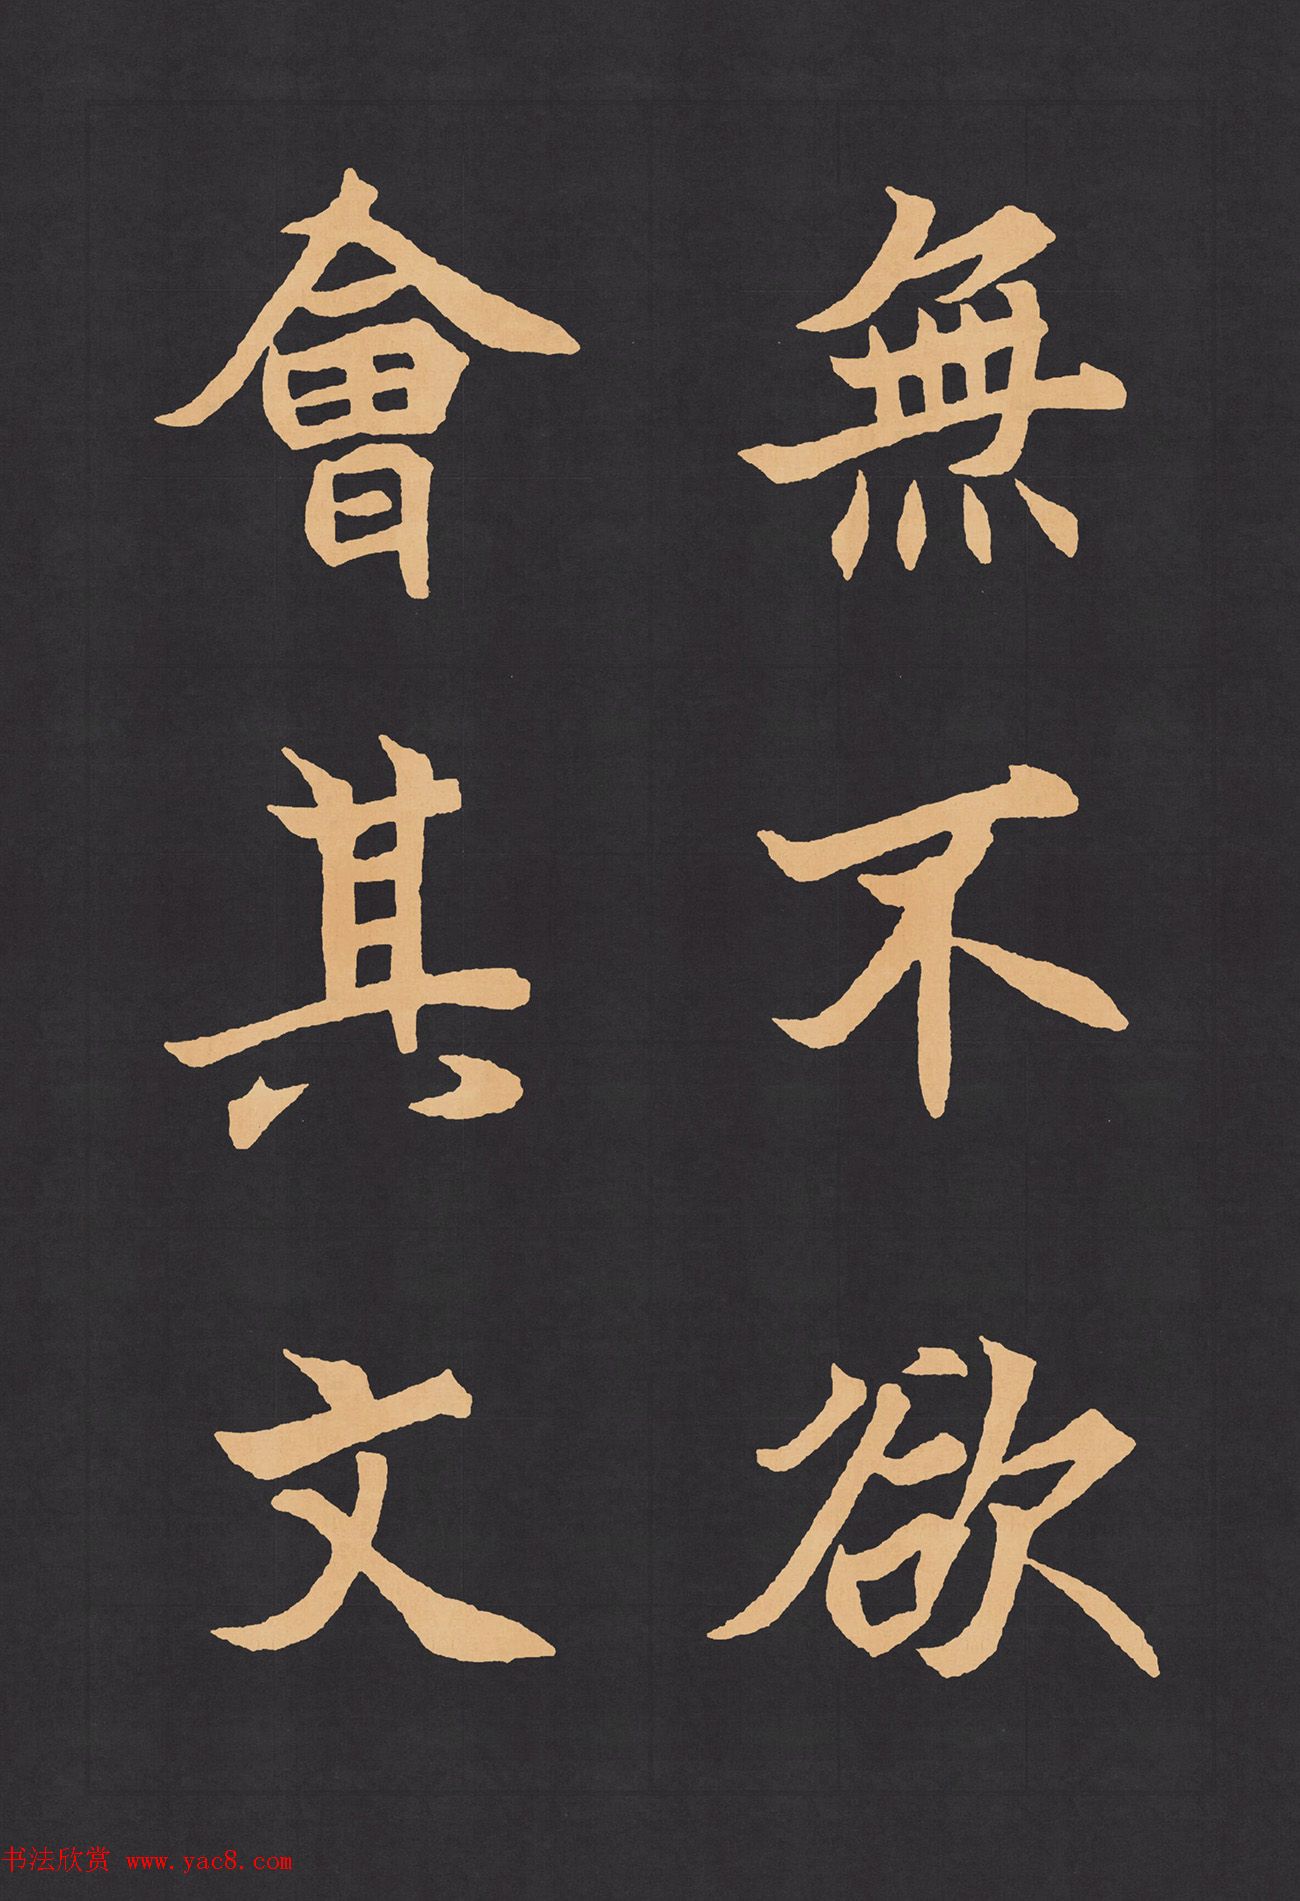 無不欲
會其文
书法欣赏 www.yac8.com